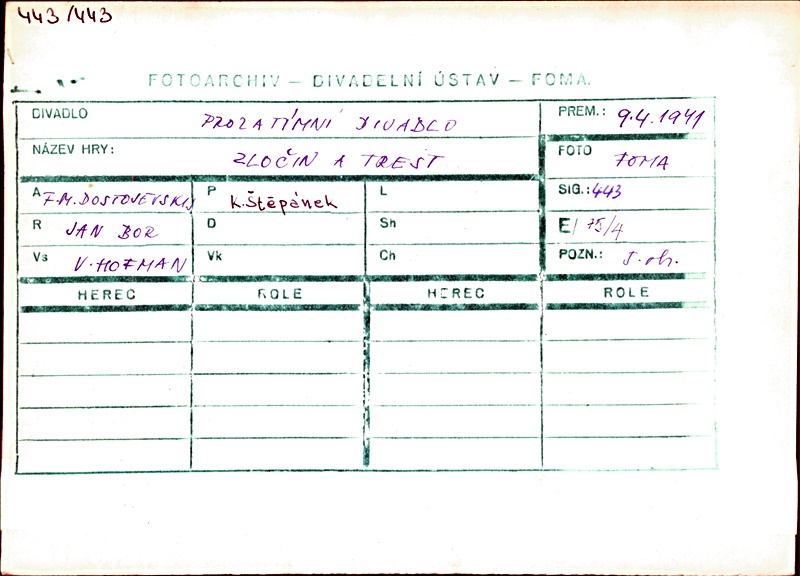 443/443
FOTOARCHIV – DIVADELNÍ ÚSTAV – FOMA
DIVADLO PROZATÍMNÍ DIVADLO PREM.: 9.4.1941
NÁZEV HRY: ZLOČIN A TREST FOTO FOMA
A F.M. DOSTOJEVSKIJ P K. Štěpánek L SIG.: 443
R JAN BOR D Sh E/ 75/4
Vs V. HOFMAN Vk Ch POZN.:
HEREC ROLE HEREC ROLE